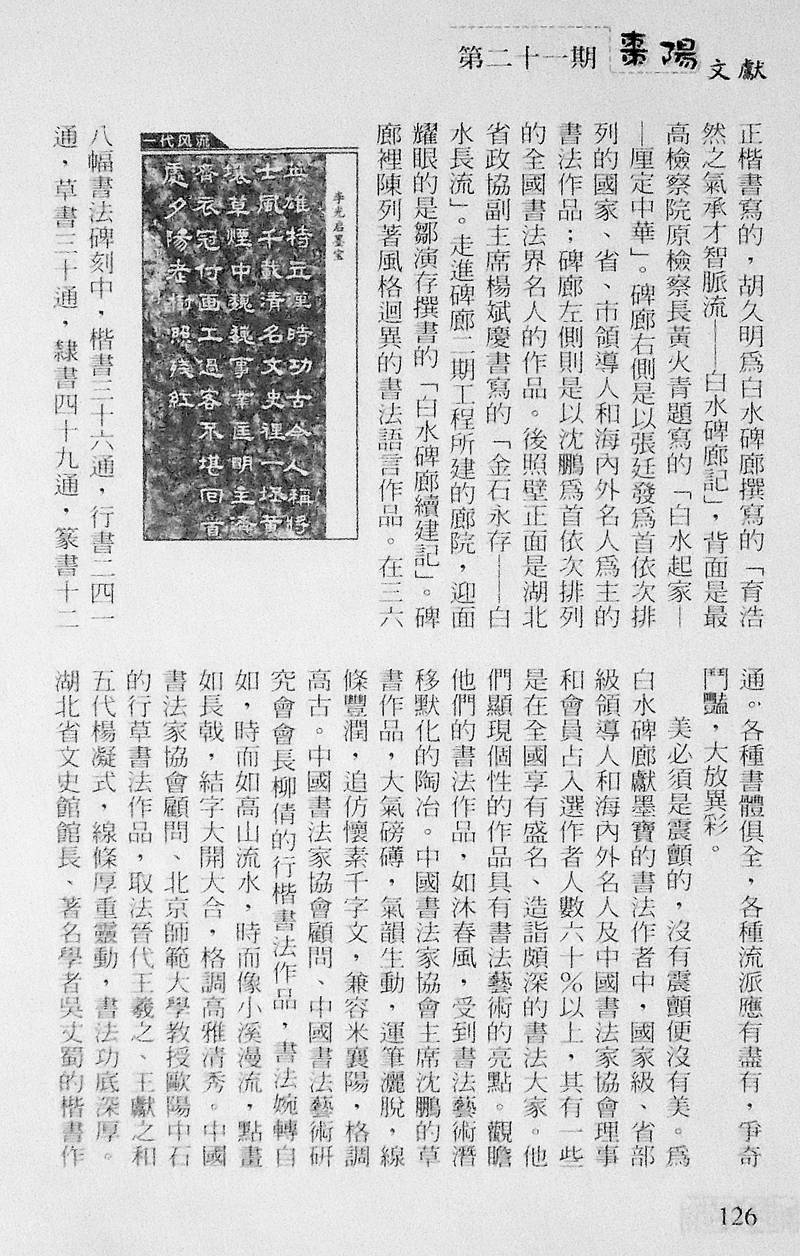 第二十一期 棗陽文獻
正楷書寫的，胡久明爲白水碑廊撰寫的「育浩
然之氣承才智脈流——白水碑廊記」，背面是最
高檢察院原檢察長黃火青題寫的「白水起家—
—厘定中華」。碑廊右側是以張廷發爲首依次排
列的國家、省、市領導人和海內外名人爲主的
書法作品；碑廊左側則是以沈鵬爲首依次排列
的全國書法界名人的作品。後照壁正面是湖北
省政協副主席楊斌慶書寫的「金石永存——白
水長流」。走進碑廊二期工程所建的廊院，迎面
耀眼的是鄒演存撰書的「白水碑廊續建記」。碑
廊裡陳列著風格迴異的書法語言作品。在三六
一代风流
李光启墨宝
英雄特立漢時功古今人稱將
士風千載清名文史裡一抔黃
堆草煙中巍巍事業匡明主濟
濟衣冠付画工過客不堪回首
處夕陽老樹照殘紅
八幅書法碑刻中，楷書三十六通，行書二四一
通，草書三十通，隸書四十九通，篆書十二
通。各種書體俱全，各種流派應有盡有，爭奇
鬥豔，大放異彩。
美必須是震顫的，沒有震顫便沒有美。爲
白水碑廊獻墨寶的書法作者中，國家級、省部
級領導人和海內外名人及中國書法家協會理事
和會員占入選作者人數六十%以上，其有一些
是在全國享有盛名、造詣頗深的書法大家。他
們顯現個性的作品具有書法藝術的亮點。觀瞻
他們的書法作品，如沐春風，受到書法藝術潛
移默化的陶冶。中國書法家協會主席沈鵬的草
書作品，大氣磅礴，氣韻生動，運筆灑脫，線
條豐潤，追仿懷素千字文，兼容米襄陽，格調
高古。中國書法家協會顧問、中國書法藝術研
究會會長柳倩的行楷書法作品，書法婉轉自
如，時而如高山流水，時而像小溪漫流，點畫
如長戟，結字大開大合，格調高雅清秀。中國
書法家協會顧問、北京師範大學教授歐陽中石
的行草書法作品，取法晉代王羲之、王獻之和
五代楊凝式，線條厚重靈動，書法功底深厚。
湖北省文史館館長、著名學者吳丈蜀的楷書作
126